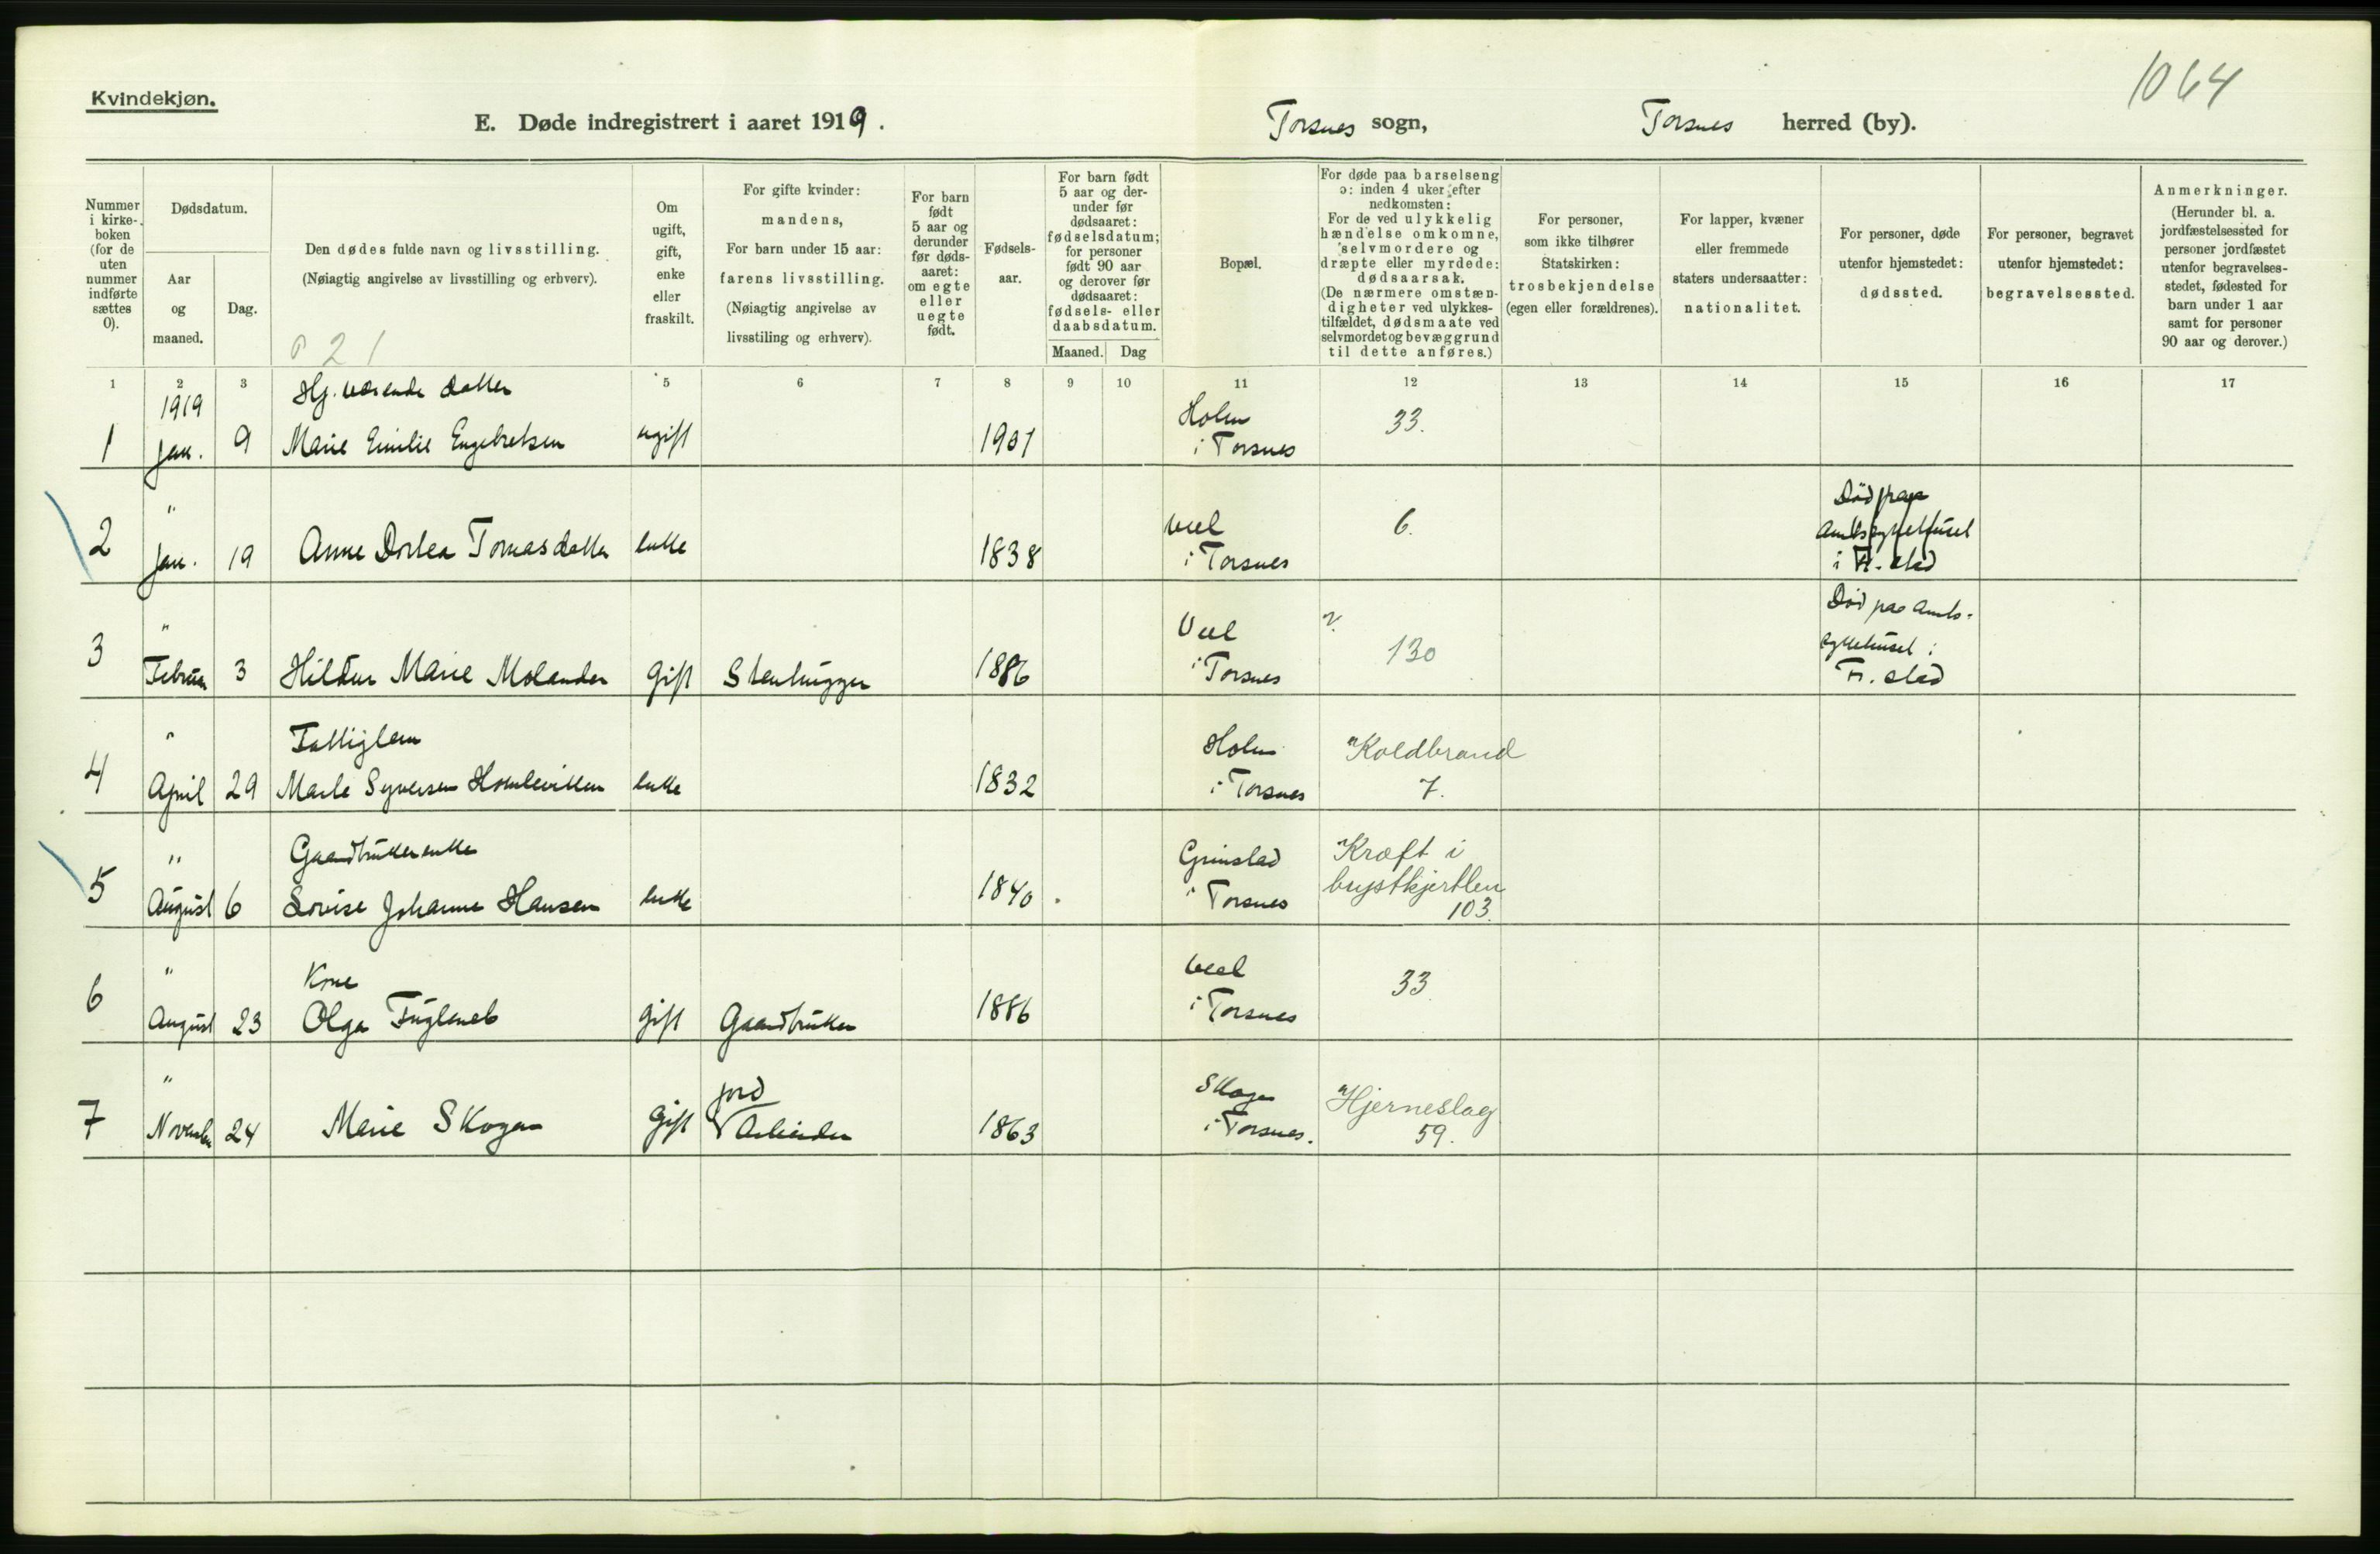 1064
Kvindekjøn.
E. Døde indregistrert i aaret 1919. Torsnes sogn, Torsnes herred (by).
Nummer i kirkeboken (for de uten nummer indførte sættes 0).
Dødsdatum.
Aar og maaned.
Dag.
Den dødes fulde navn og livsstilling.
(Nøiagtig angivelse av livsstilling og erhverv).
Om ugift, gift, enke eller fraskilt.
For gifte kvinder: mandens, For barn under 15 aar: farens livsstilling. (Nøiagtig angivelse av livsstiling og erhverv).
For barn født 5 aar og derunder før dødsaaret: om egte eller uegte født.
Fødselsaar.
For barn født 5 aar og derunder før dødsaaret: fødselsdatum; for personer født 90 aar og derover før dødsaaret: fødsels- eller daabsdatum.
Maaned. Dag
Bopæl.
For døde paa barselseng ɔ: inden 4 uker efter nedkomsten: For de ved ulykkelig hændelse omkomne, selvmordere og dræpte eller myrdede: dødsaarsak. (De nærmere omstændigheter ved ulykkestilfældet, dødsmaate ved selvmordet og bevæggrund til dette anføres.)
For personer, som ikke tilhører Statskirken: trosbekjendelse (egen eller forældrenes).
For lapper, kvæner eller fremmede staters undersaatter: nationalitet.
For personer, døde utenfor hjemstedet: dødssted.
For personer, begravet utenfor hjemstedet: begravelsessted.
Anmerkninger. (Herunder bl. a. jordfæstelsessted for personer jordfæstet utenfor begravelsesstedet, fødested for barn under 1 aar samt for personer 90 aar og derover.)
1 2 3 5 6 7 8 9 10 11 12 13 14 15 16 17
1919 Hj. værende datter Holm 33.
1 Jan. 9 Marie Emilie Engebretsen ugift 1901 i Torsnes
" Vul 6. Död paa Amtssykehuset
2 Jan. 19 Anne Dorlea Tomasdatter enke 1838 i Torsnes i Fr. stad
" Uul 130 Död paa Amts-
sykehuset i
3 Februar 3 Hildur Marie Molander Gift Stenhugger 1886 i Torsnes Fr. stad
" Fattiglem Holm "Koldbrand
4 April 29 Marte Syversen enke 1832 i Torsnes 7.
" Gaardbrukerenke Grimstad Kræft i brystkjertlen
5 August 6 Lovise Johanne Hansen enke 1840 i Torsnes 103.
" Kone 33
6 August 23 Olga Fugleneb gift Gaardbruker 1886 i Torsnes
" jord Skogen "Hjerneslag
7 November 24 Marie Skogen Gift Arbeider 1863 i Torsnes. 59.